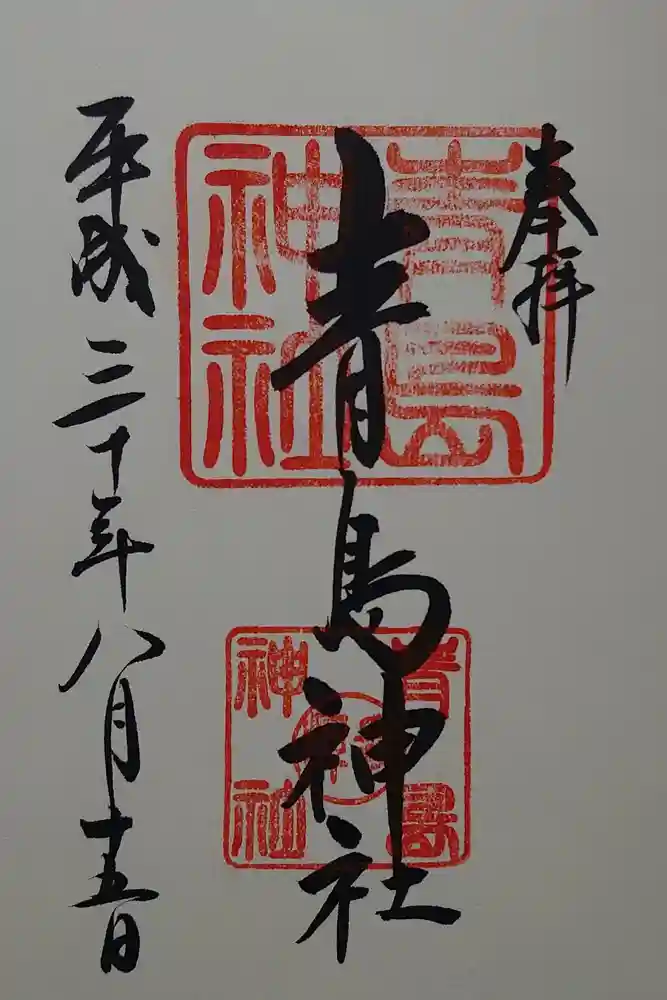 奉拝
青島神社
平成三十年八月十五日
青島
神社
青島
神社